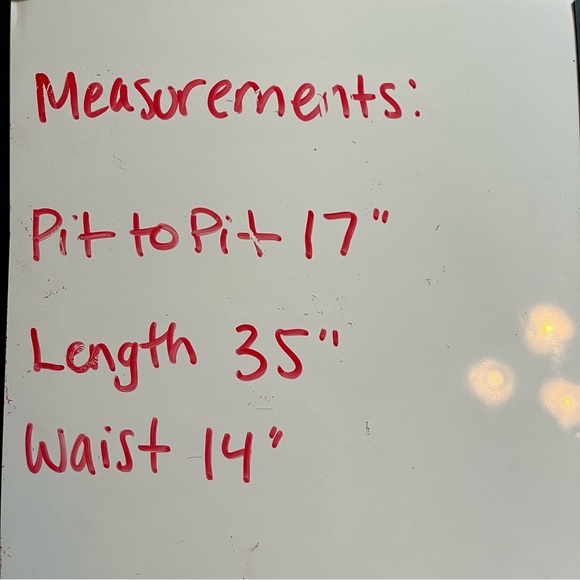 Measurements:
Pit to Pit 17"
Length 35"
Waist 14"